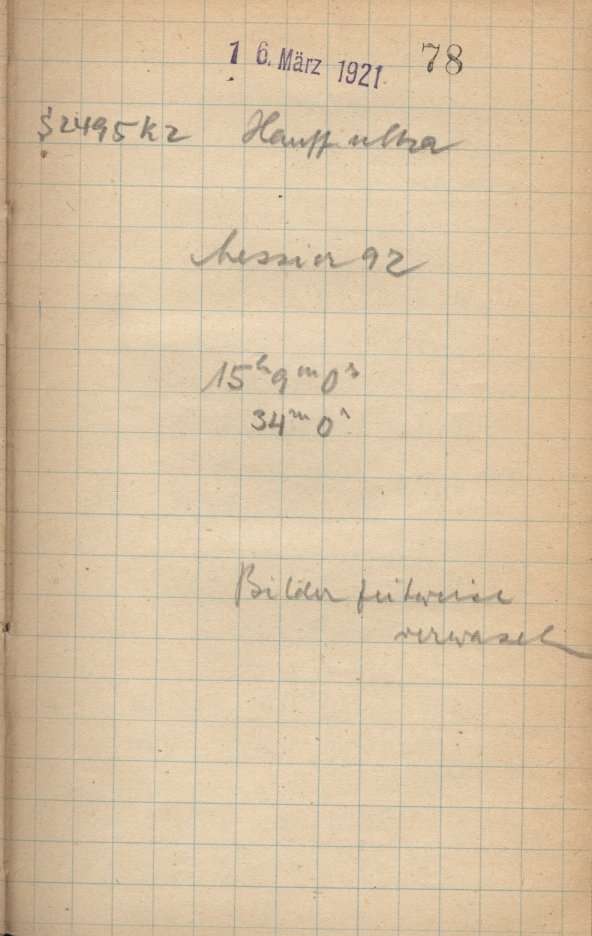 16. März 1921 78
S2495 K2 Hauff ultra
Messier 92
15ʰ9ᵐ0ˢ
34ᵐ0ˢ
Bilder zeitweise
verwasch